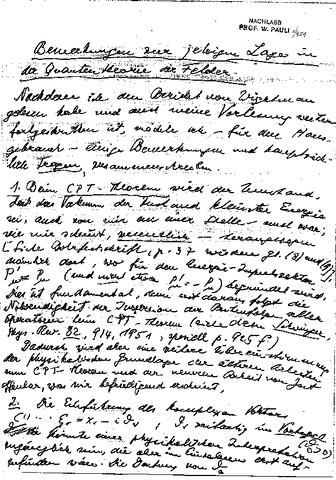 NACHLASS
PROF. W. PAULI
Bemerkungen zur jetzigen Lage in
der Quantentheorie der Felder.
Nachdem ich den Bericht von Wightman
gelesen habe und auch meine Vorlesung weiter
fortgeschritten ist, möchte ich - für den Haus-
gebrauch - einige Bemerkungen und hauptsäch-
lich Fragen, zusammenschreiben.
1. Beim CPT-Theorem wird der Umstand,
dass das Vakuum der Zustand kleinster Energie
sei, auch von mir an einer Stelle, und zwar,
wie mir scheint, wesentlich herangezogen
p. 37
dort, wo für den Energie-Impulsvektor
(und nicht etwa) begründet wird.
Dies ist fundamental, denn daraus folgt die
Notwendigkeit der Inversion der Reihenfolge aller
Operatoren beim CPT-Theorem (siehe dazu Schwinger
Phys. Rev. 82, 914, 1951, speziell p. 925 f)
Dadurch wird aber eine weitere Übereinstimmung
der physikalischen Grundlagen der älteren Arbeiten
zum CPT-Theorem und der neueren Arbeit von Jost
was mir befriedigend erscheint.
2. Die Einführung des komplexen Vektors
könnte einer physikalischen Interpretation
zugänglich sein, die aber im Einzelnen erst auf-
zufinden wäre. Die Deutung von